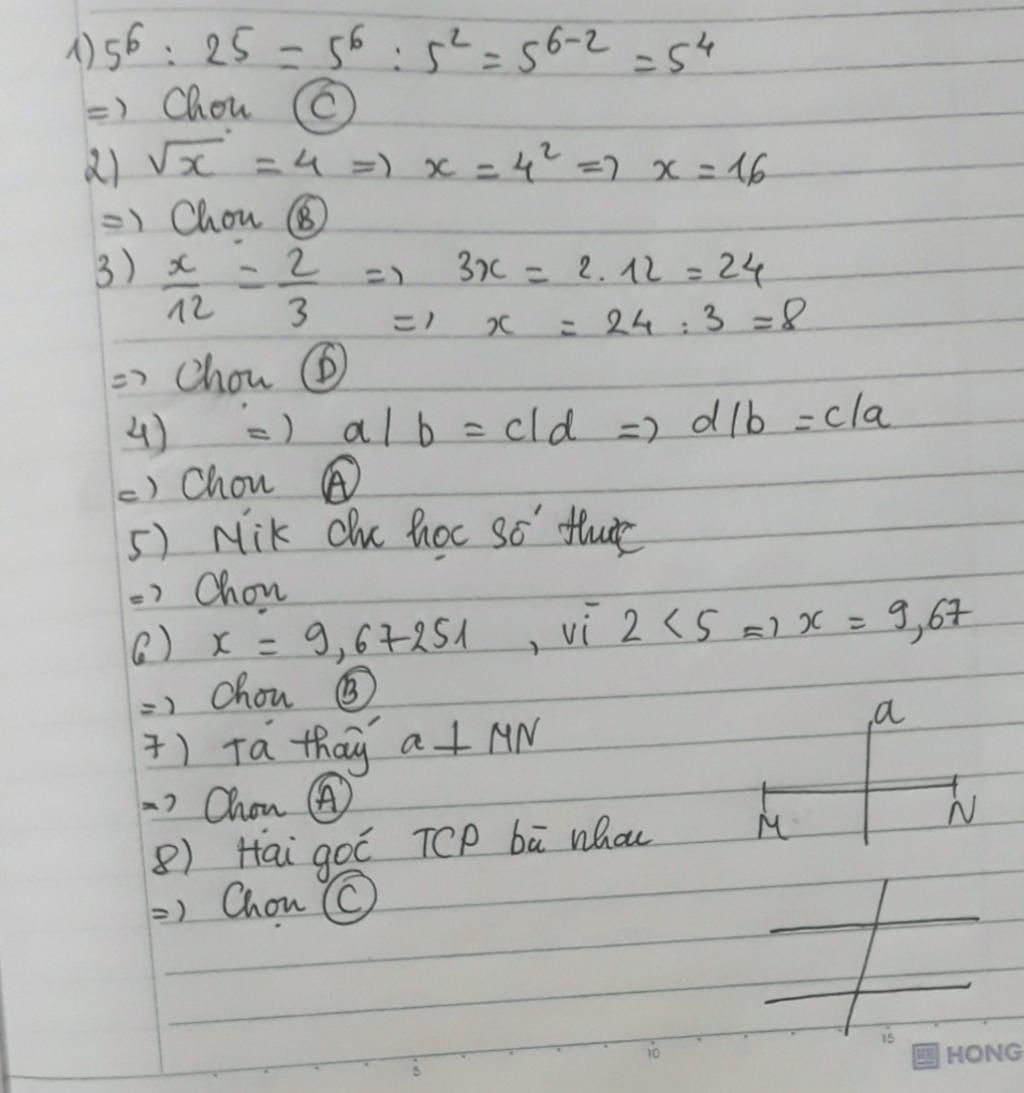 1) 5⁶ : 25 = 5⁶ : 5² = 5⁶⁻² = 5⁴
=> Chọn Ⓒ
2) √x = 4 => x = 4² => x = 16
=> Chọn Ⓑ
3) x/12 = 2/3 => 3x = 2.12 = 24
=> x = 24 : 3 = 8
=> Chọn Ⓓ
4) => a/b = c/d => d/b = c/a
=> Chọn Ⓐ
5) Mik chx học số thực
=> Chọn
6) x = 9,67251 , vì 2 < 5 => x = 9,67
=> Chọn Ⓑ
7) Ta thấy a ⊥ MN
=> Chọn Ⓐ
a
M N
8) Hai góc TCP bù nhau
=> Chọn Ⓒ
5 10 15
HONG